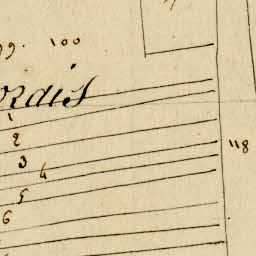 99. 100
rdis
1
2
3
4
5
6
118